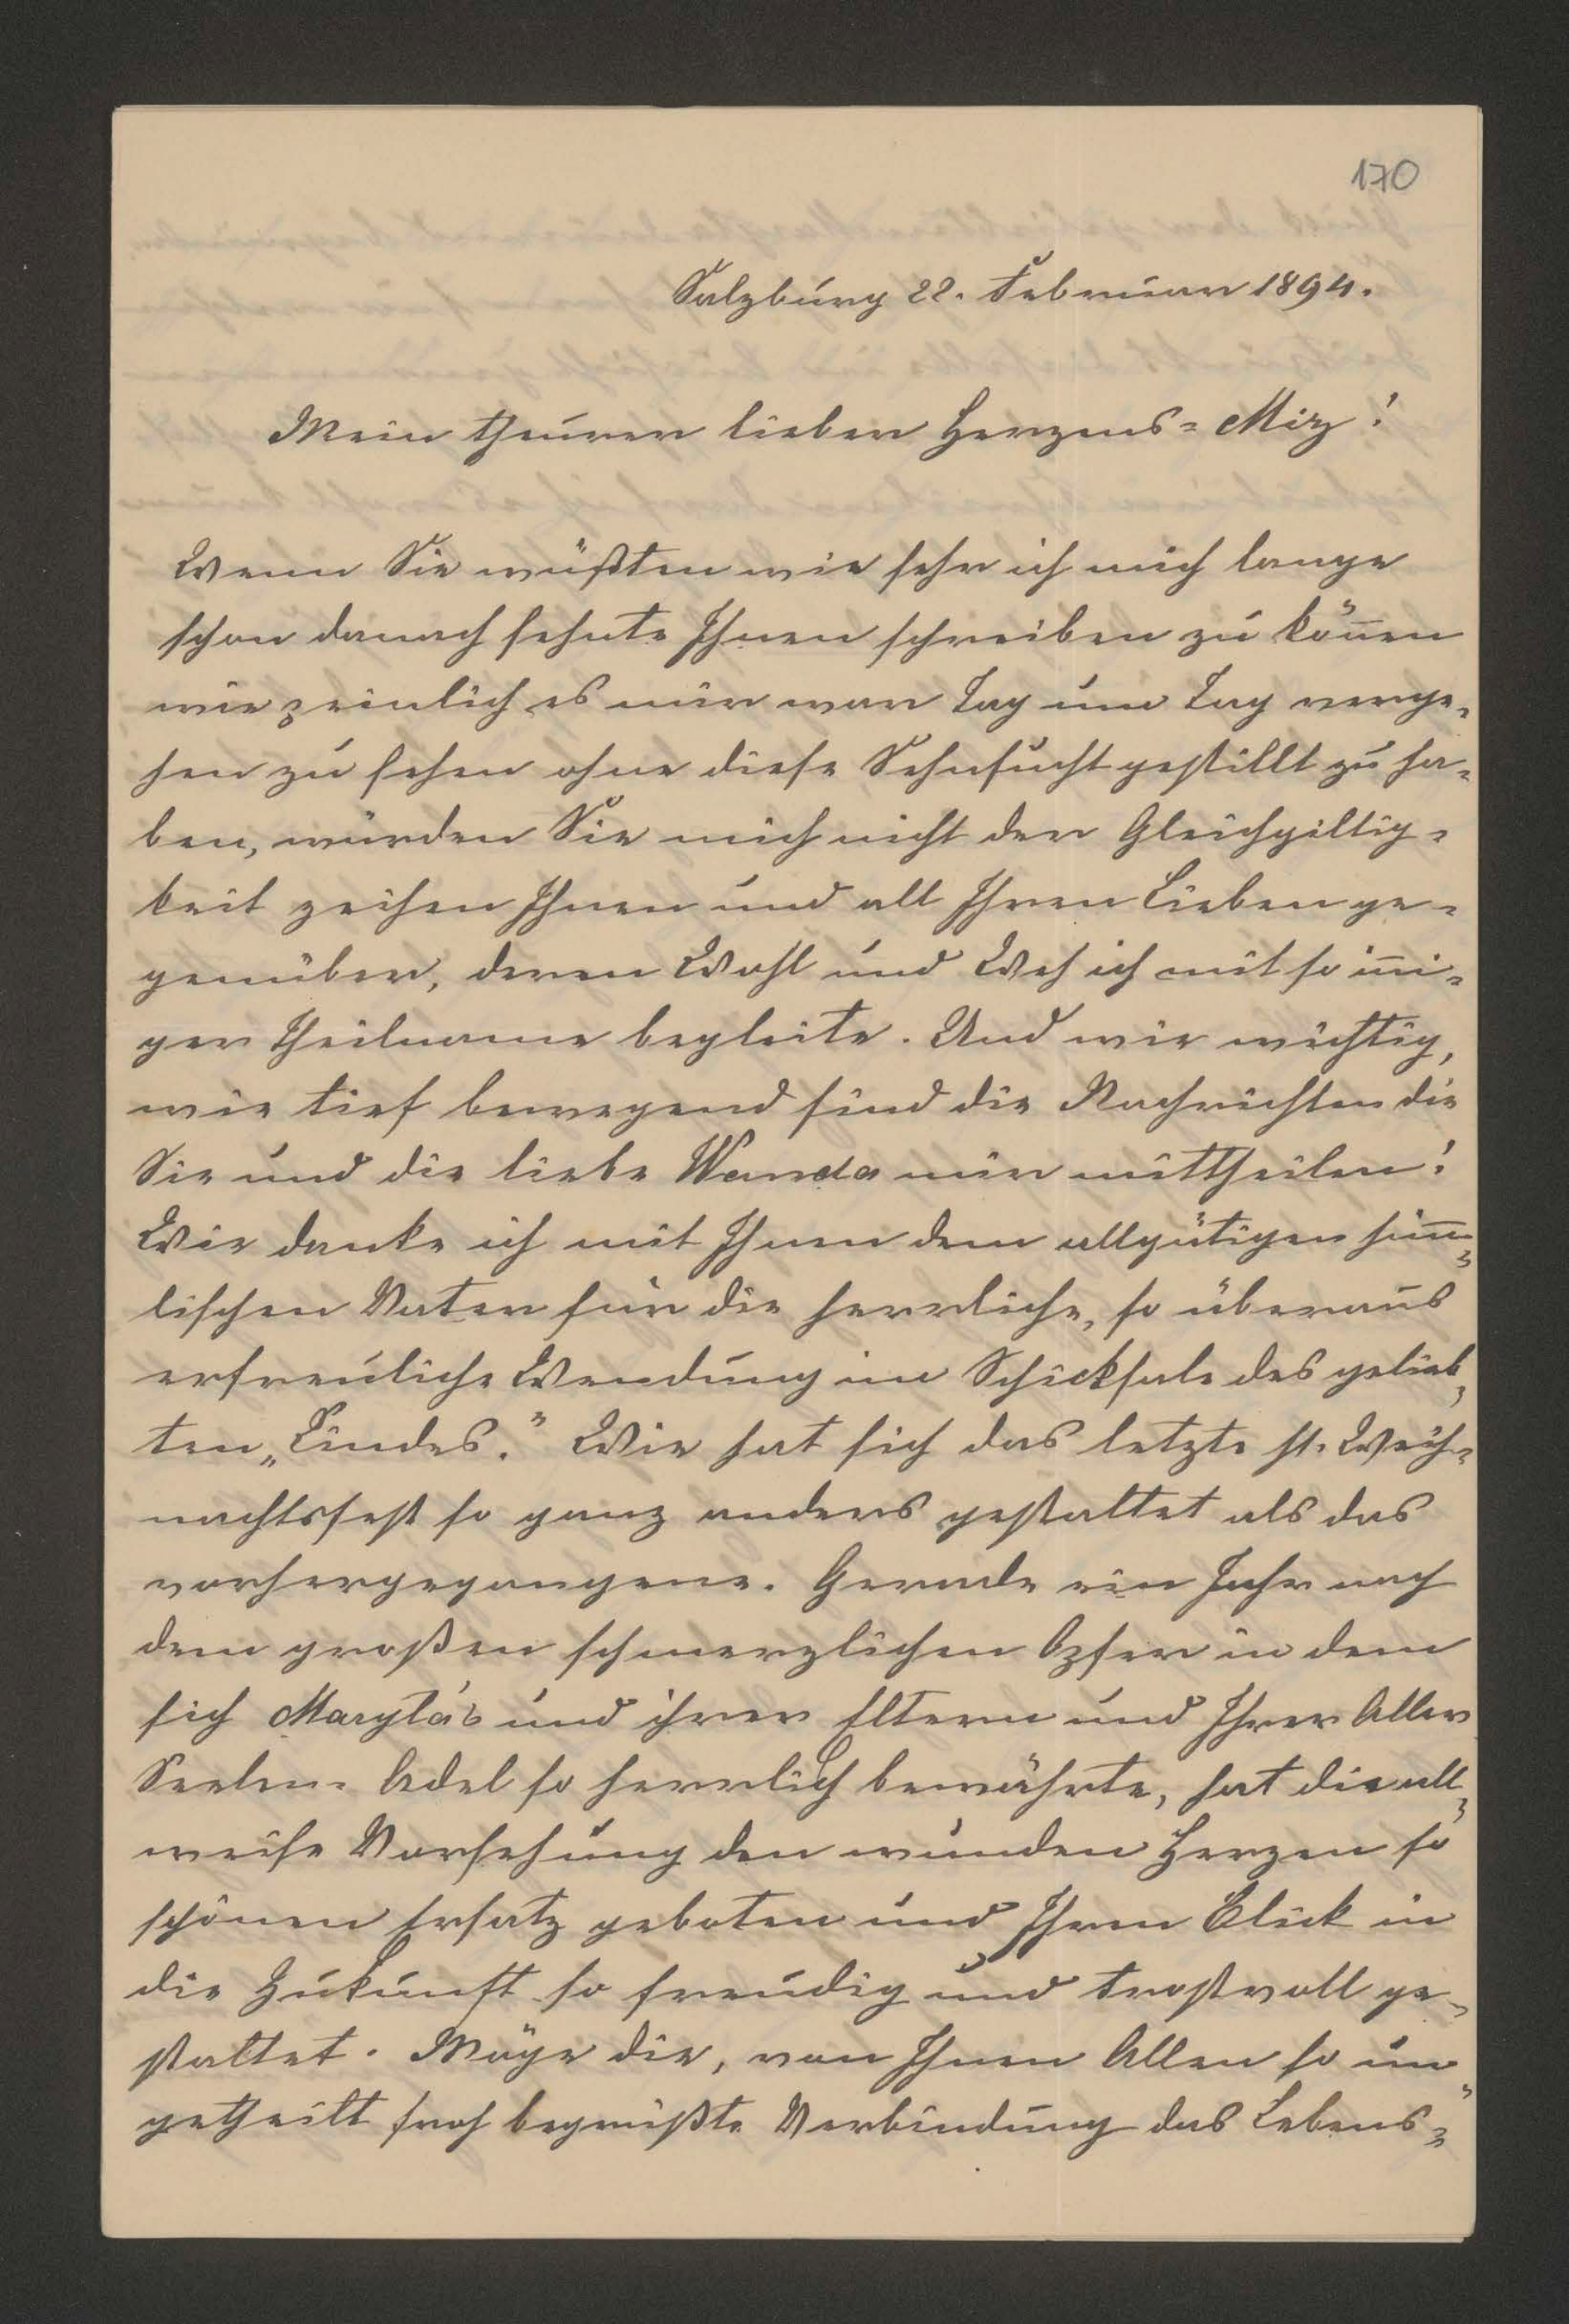 170
Salzburg 22. Februar 1894.
Mein theurer lieber Herzens= Miz!
Wenn Sie wüßten wie sehr ich mich lange
schon danach sehnte Ihnen schreiben zu kön̄en
wie peinlich es mir war Tag um Tag verge=
hen zu sehen ohne diese Sehnsucht gestillt zu ha=
ben, würden Sie mich nicht der Gleichgiltig=
keit zeihen Ihnen und all Ihren Lieben ge=
genüber, deren Wohl und Weh ich mit so in̄i=
ger Theilname begleite. Und wie wichtig,
wie tief bewegend sind die Nachrichten die
Sie und die liebe Wanda mir mittheilen!
Wie danke ich mit Ihnen dem allgütigen him̄=
lischen Vater für die herrliche, so überaus
erfreuliche Wendung im Schicksale des gelieb=
ten „Kindes." Wie hat sich das letzte hl. Weih=
nachtsfest so ganz anders gestaltet als das
vorhergegangene. Gerade ein Jahr nach
dem großen schmerzlichen Opfer in dem
sich Maryla's und ihrer Eltern und Ihrer Aller
Seelen= Adel so herrlich bewährte, hat die all=
weise Vorsehung den wunden Herzen so
schönen Ersatz geboten und Ihren Blick in
die Zukunft so freudig und trostvoll ge=
staltet. Möge die, von Ihnen Allen so un=
getheilt froh begrüßte Verbindung das Lebens=